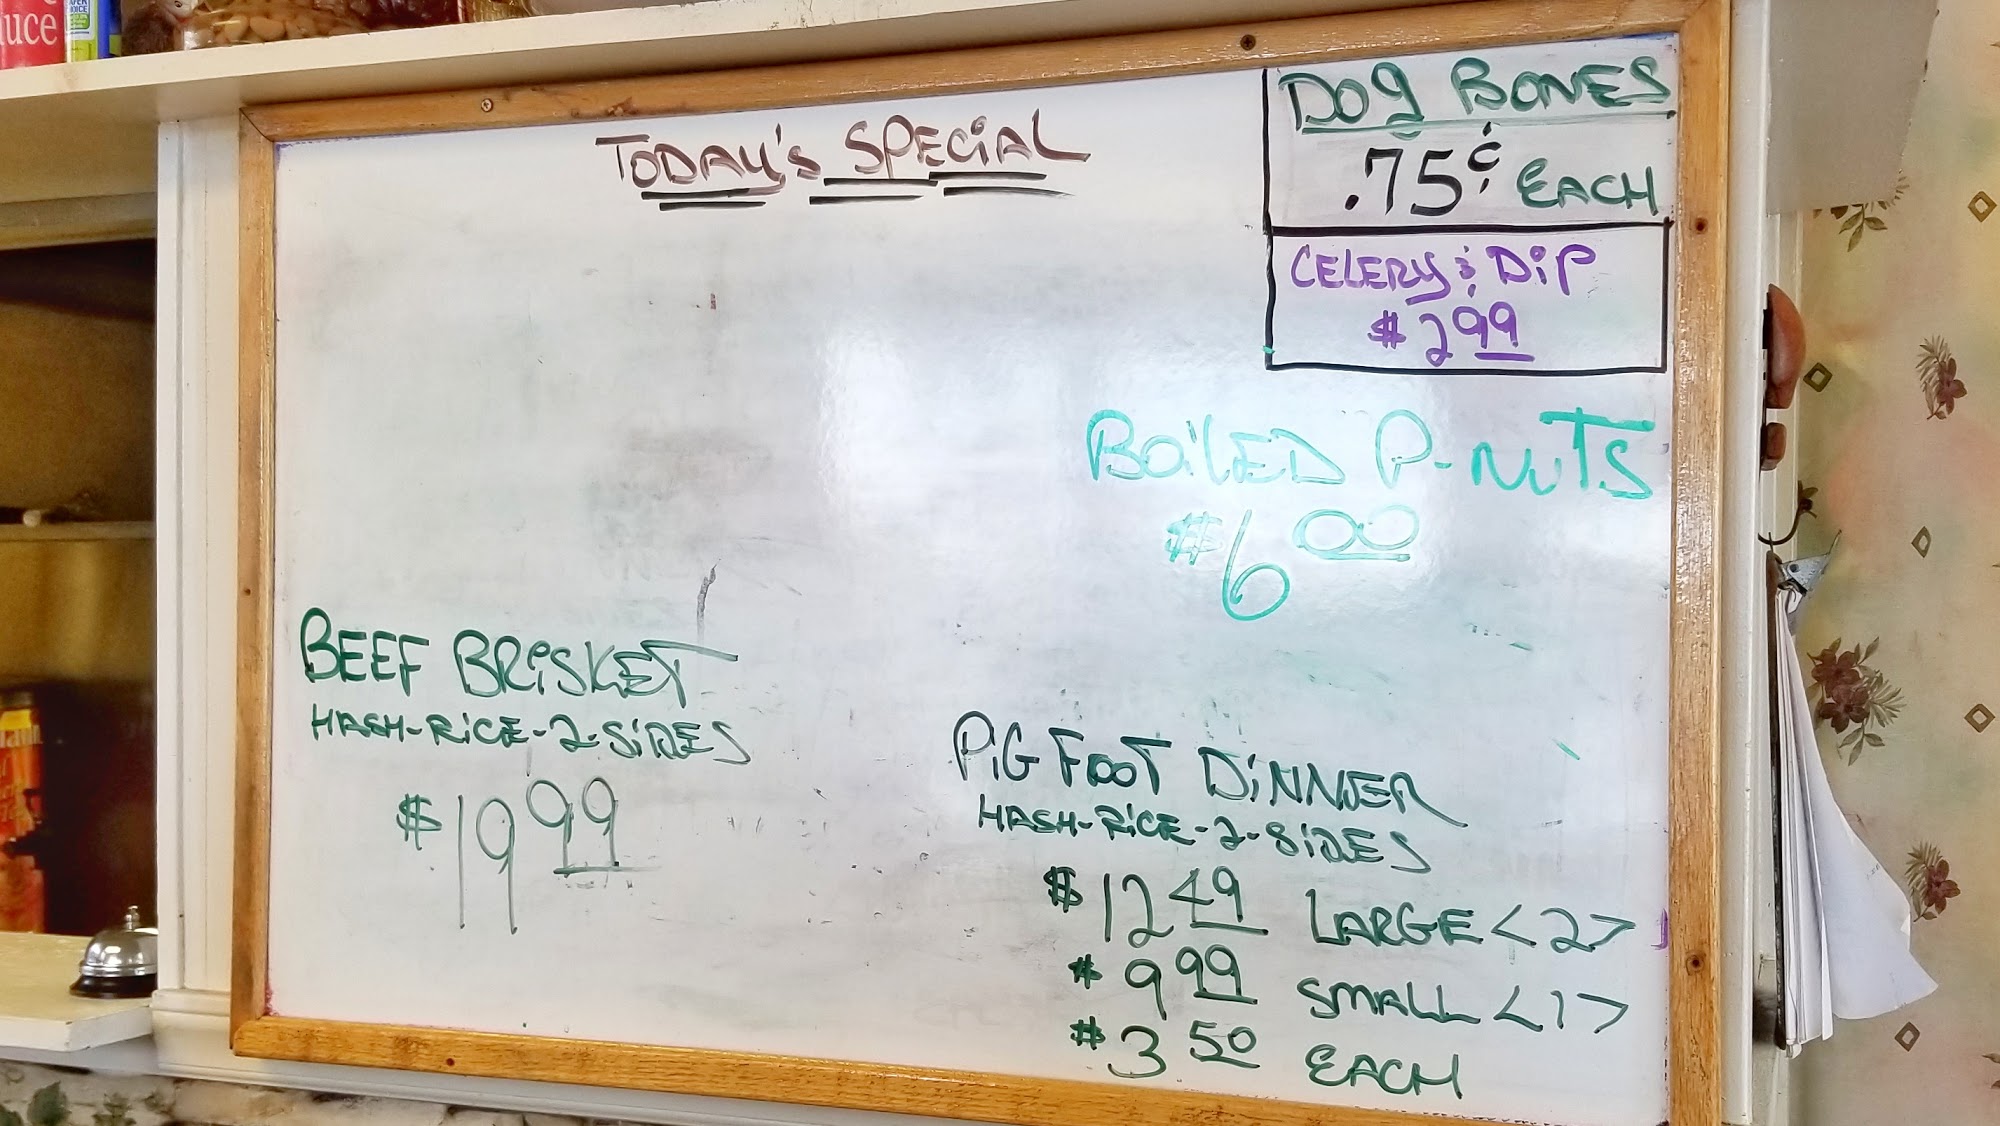 uce
TODAY'S SPECIAL
DOg BONES
.75¢ EACH
CELERY & DiP
$2.99
BOiLED P-NUTS
$6.00
BEEF BRiSKET
HASH-RiCE-2-SiDES
$19.99
PiG FOOT DiNNER
HASH-RiCE-2-SiDES
$12.49 LARGE <2>
$9.99 SMALL <1>
$3.50 EACH